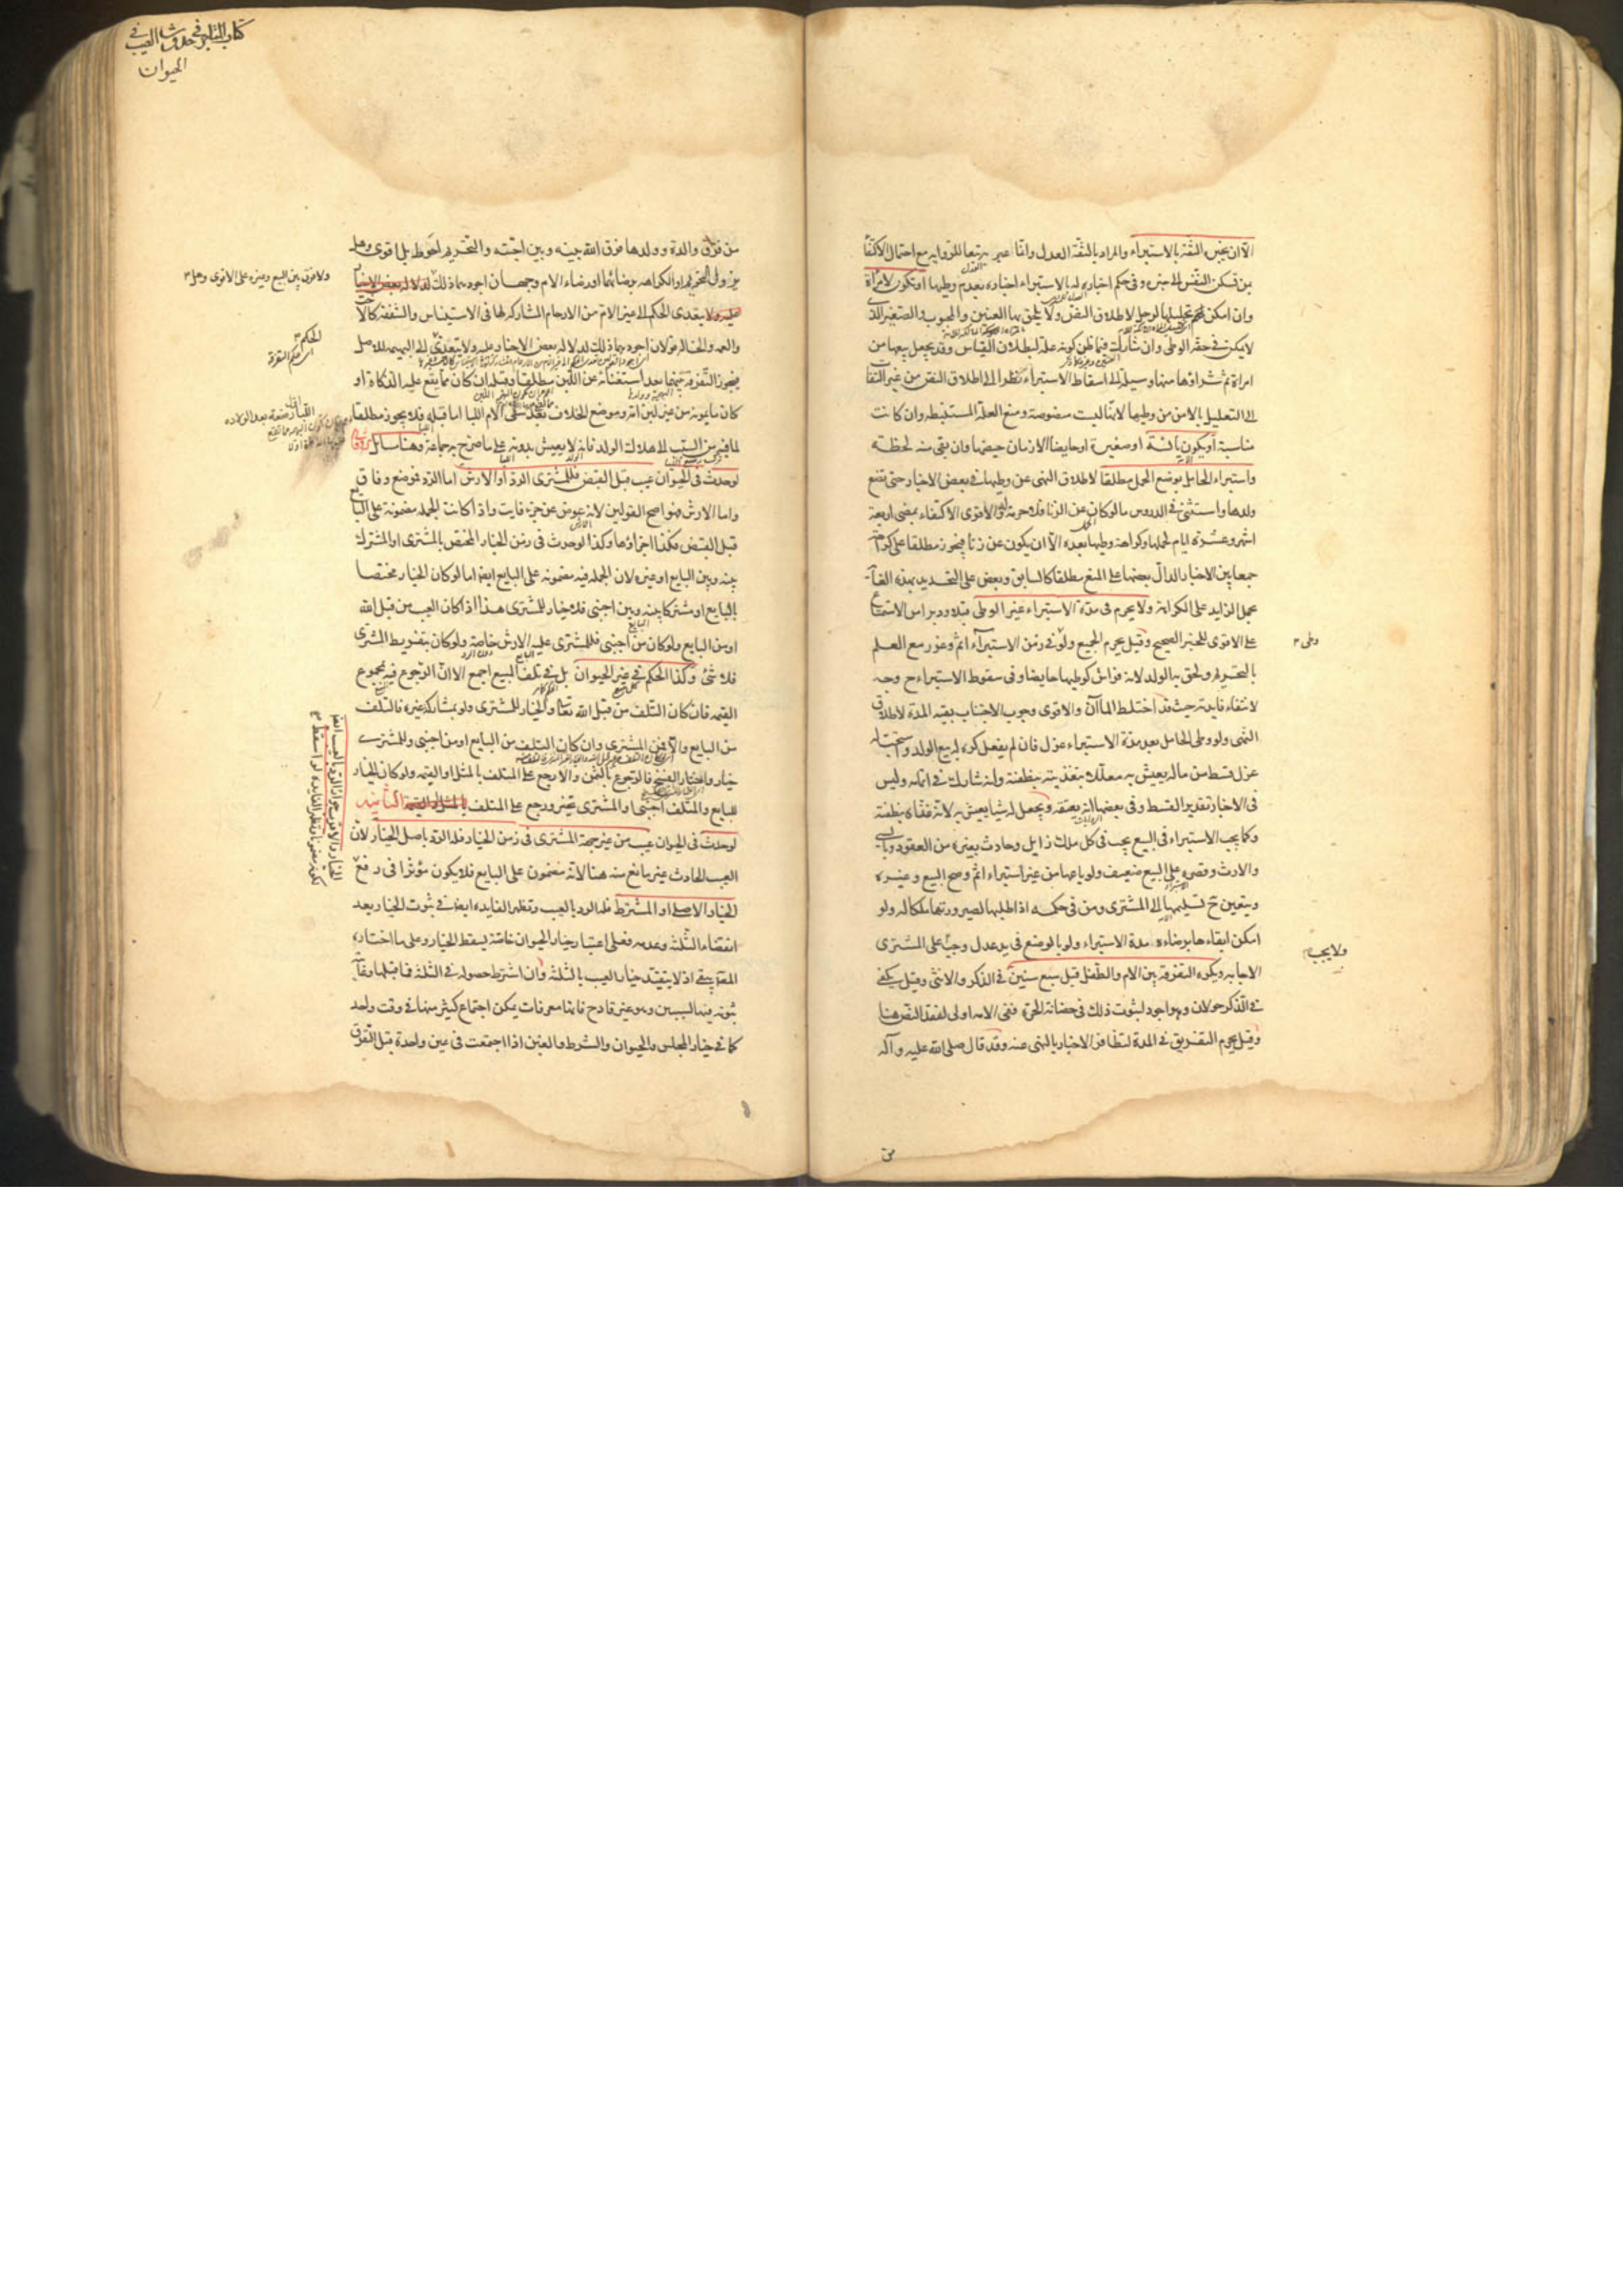 الا ان يخبر الثقة بالاستبراء والمراد بالثقة العدل وانما عبر به تبعا للرواية مع احتمال الاكتفا
بمن تسكن النفس الى خبره وفي حكم اخباره له بالاستبراء اخباره بعدم وطيها او تكون لامرأة
وان امكن تحليلها لرجل لاطلاق النص ولا يلحق بها العنين والمجبوب والصغير الذى
لا يمكن في حقه الوطى وان شاركت فيما ظن كونه علة لبطلان القياس وقد يجعل بيعها من
امراة ثم شراؤها منها وسيلة الى اسقاط الاستبراء نظرا الى اطلاق النص من غير التفات
الى التعليل بالامن من وطيها لانها ليست منصوصة ومنع العلة المستنبطة وان كانت
مناسبة او يكون يائسة او صغيرة او حايضا الا زمان حيضها وان بقى منه لحظة
واستبراء الحامل بوضع الحمل مطلقا لاطلاق النهى عن وطيها في بعض الاخبار حتى تضع
ولدها واستثنى في الدروس ما لو كان عن الزنا فلا حرمة له والاقوى الاكتفاء بمضى اربعة
اشهر وعشرة ايام لحملها وكراهة وطيها بعده الا ان يكون عن زنا فيجوز مطلقا على كراهة
جمعا بين الاخبار الدال بعضها على المنع مطلقا كالسابق وبعض على التحديد بهذه الغاية
بحمل الزايد على الكراهة ولا يحرم في مدة الاستبراء غير الوطى قبلا ودبرا من الاستمتاع
على الاقوى للخبر الصحيح وقيل يحرم الجميع ولو في زمن الاستبراء اثم وعزر مع العلم
وطى
بالتحريم ولحق به الولد لانه فراش كوطيها حايضا وفي سقوط الاستبراء ح وجه
لانتفاء فايدته حيث قد اختلط الماآن والاقوى وجوب الاجتناب بقية المدة لاطلاق
النهى ولو وطى الحامل بعد مدة الاستبراء عزل فان لم يفعل كره له بيع الولد واستحب له
عزل قسط من ماله يعيش به معللا بتغذيته بنطفته وانه شارك في اتمامه وليس
في الاخبار تقدير القسط وفي بعضها انه يعتقه ويجعل له شيا يعيش به لانه غذاه بنطفته
وكما يجب الاستبراء في البيع يجب في كل ملك زايل وحادث بغيره من العقود وبالسبى
والارث وقصره على البيع ضعيف ولو باعها من غير استبراء اثم وصح البيع وغيره
ويتعين ح تسليمها الى المشترى ومن في حكمه اذا طلبها لصيرورتها ملكا له ولو
امكن ابقاءها برضاءه مدة الاستبراء ولو بالوضع في يد عدل وجب على المشترى
ولا يجب
الاجابه ويكره التفرقة بين الام والطفل قبل سبع سنين في الذكر والانثى وقيل يكفى
في الذكر حولان وهو اجود لثبوت ذلك في حضانة الحرة ففى الامه اولى لفقد النص هنا
وقيل يحرم التفريق في المدة لتظافر الاخبار بالنهى عنه وقد قال صلى الله عليه وآله
من
كتاب المتاجر في حدوث العيب في
الحيوان
من فرق والدة وولدها فرق الله بينه وبين احبته والتحريم احوط بل اقوى وهل
يزول التحريم او الكراهه برضائهما او رضاء الام وجهان اجودهما ذلك
ولا فرق بين البيع وغيره على الاقوى وهل
ولا يتعدى الحكم الى غير الام من الارحام المشاركه لها في الاستيناس والشفقة كالاخت
والعمه والخاله قولان اجودهما ذلك لدلالة بعض الاخبار عليه ولا يتعدى الى البهيمه للاصل
الحكم
فيجوز التفرقة بينهما بعد استغنائه عن اللبن مطلقا وقبله ان كان مما يقع عليه الذكاة او
كان ما يمونه من غير لبن امه وموضع الخلاف بعد سقى الام اللبا اما قبله فلا يجوز مطلقا
لما فيه من التسبب الى هلاك الولد فانه لا يعيش بدونه على ما صرح به جماعة وهنا مسائل
لو حدث في الحيوان عيب قبل القبض فللمشترى الرد او الارش اما الرد فموضع وفاق
واما الارش فهو اصح القولين لانه عوض عن جزء فايت واذا كانت الجمله مضمونة على البايع
قبل القبض فكذا اجزاؤها وكذا لو حدث في زمن الخيار المختص بالمشترى او المشترك
بينه وبين البايع او غيره لان الجمله فيه مضمونه على البايع ايضا اما لو كان الخيار مختصا
بالبايع او مشتركا بينه وبين اجنبى فلا خيار للمشترى هذا اذا كان العيب من قبل الله
او من البايع ولو كان من اجنبى فللمشترى عليه الارش خاصة ولو كان بتفريط المشترى
فلا شئ وكذا الحكم في غير الحيوان بل في تلف المبيع اجمع الا ان الرجوع فيه بمجموع
القيمه فان كان التلف من قبل الله تعالى والخيار للمشترى ولو بمشاركة غيره فالتلف
من البايع والا فمن المشترى وان كان التلف من البايع او من اجنبى وللمشترى
خيار واختار الفسخ فالرجوع بالثمن والا رجع على المتلف بالمثل او القيمه ولو كان الخيار
للبايع والمتلف اجنبى او المشترى تخير ورجع على المتلف بالمثل او القيمة الثانيه
لو حدث في الحيوان عيب من غير جهة المشترى في زمن الخيار فله الرد باصل الخيار لان
العيب الحادث غير مانع منه هنا لانه مضمون على البايع فلا يكون مؤثرا في رفع
الخيار الاصلى او المشترط فله الرد بالعيب وتظهر الفايده ايضا في ثبوت الخيار بعد
انقضاء الثلثة وعدمه فعلى اعتبار خيار الحيوان خاصة يسقط الخيار وعلى ما اختاره
المص يبقى اذ لا يتقيد خيار العيب بالثلثة وان اشترط حصوله في الثلثة فما قبلها وغايته
ثبوته فيها بسببين وهو غير قادح فانها معرفات يمكن اجتماع كثير منها في وقت واحد
كما في خيار المجلس والحيوان والشرط والغبن اذا اجتمعت في عين واحدة قبل التفرق